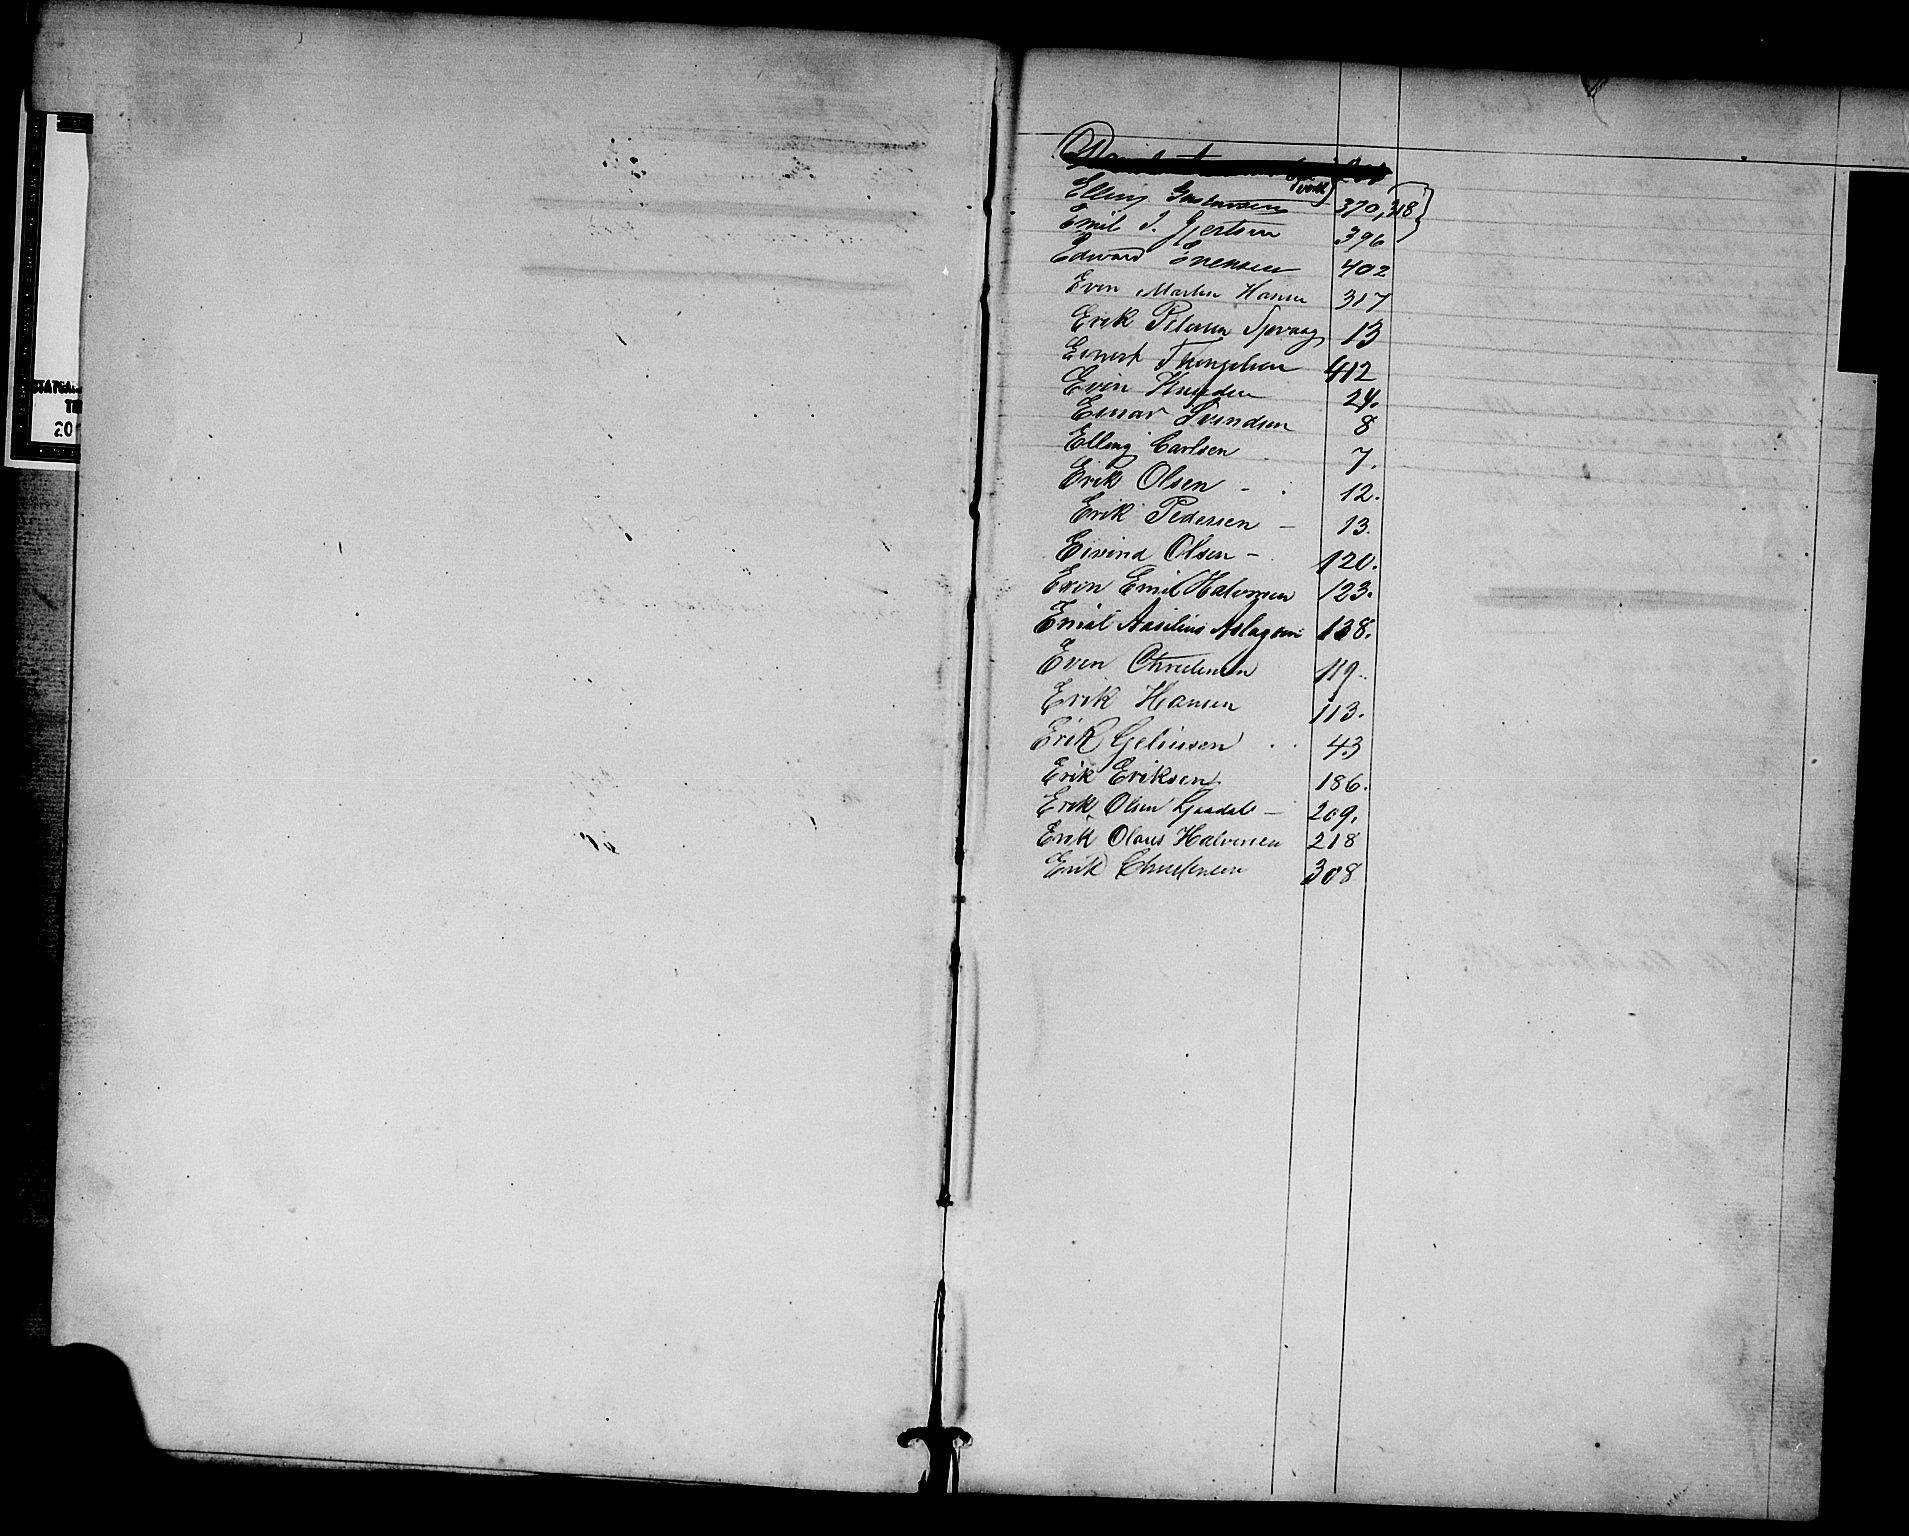 Elling Gustavsen 370,318
Emil I. Gjertsen 396
Edvard Evensen 402
Even Martin Hansen 317
Erik Pedersen 13
412
Even Knudsen 24.
Einar Svendsen 8
Elling Carlsen 7.
Erik Olsen - 12.
Erik Pedersen - 13.
Eivind Olsen - 120.
Even Emil Halvorsen 123.
Aslagsen 138.
Even Christensen 119.
Erik Hansen 113.
Erik 43
Erik Eriksen 186.
Erik Olsen - 209.
Erik Olaus Halvorsen 218
Erik Christensen 308